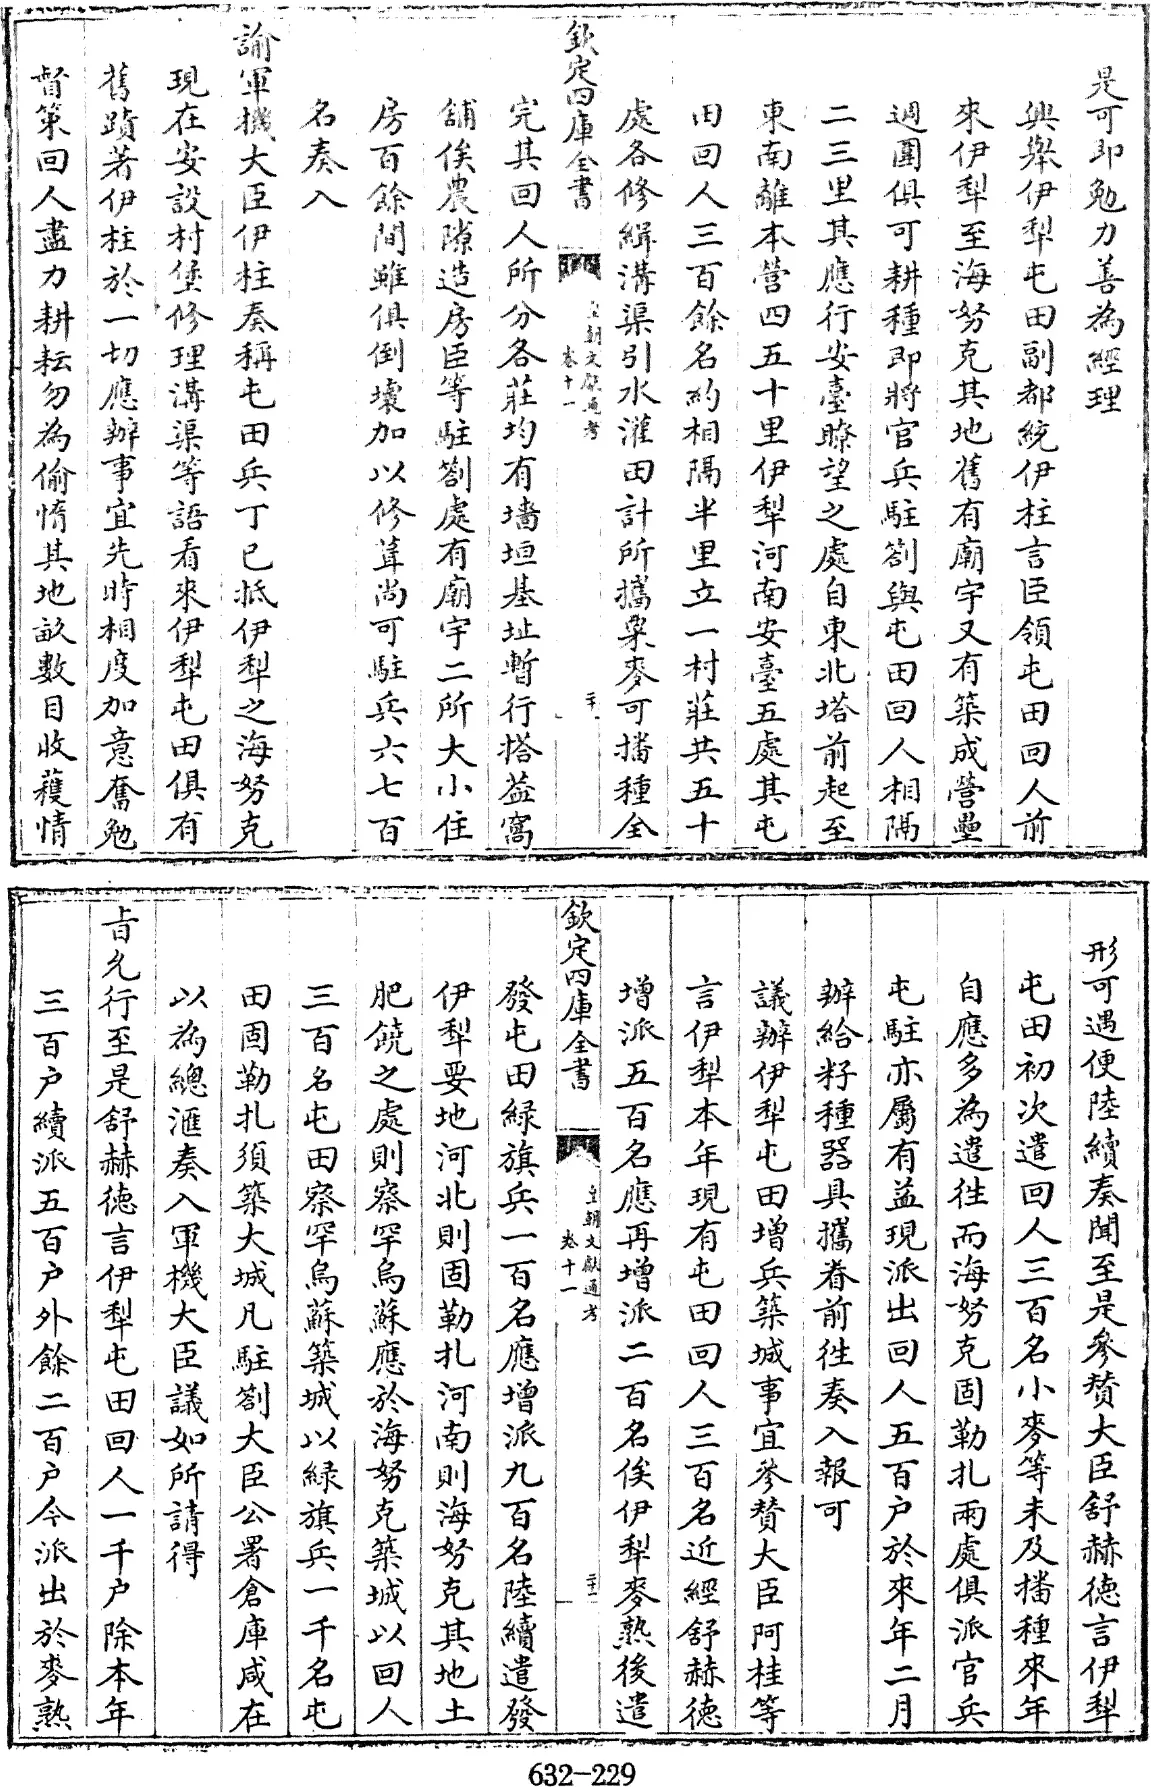 是可即勉力善為經理
興舉伊犁屯田副都統伊柱言臣領屯田回人前
來伊犁至海努克其地舊有廟宇又有築成營壘
週圍俱可耕種即將官兵駐劄與屯田回人相隔
二三里其應行安臺瞭望之處自東北塔前起至
東南離本營四五十里伊犁河南安臺五處其屯
田回人三百餘名約相隔半里立一村莊共五十
處各修緝溝渠引水灌田計所攜粟麥可播種全
欽定四庫全書
皇朝文獻通考
卷十一
二十
完其回人所分各莊均有墻垣基址暫行搭蓋窩
舖俟農隙造房臣等駐劄處有廟宇二所大小住
房百餘間雖俱倒壞加以修葺尚可駐兵六七百
名奏入
諭軍機大臣伊柱奏稱屯田兵丁已抵伊犁之海努克
現在安設村堡修理溝渠等語看來伊犁屯田俱有
舊蹟著伊柱於一切應辦事宜先時相度加意奮勉
督策回人盡力耕耘勿為偷惰其地畝數目收穫情
形可遇便陸續奏聞至是參贊大臣舒赫德言伊犁
屯田初次遣回人三百名小麥等未及播種來年
自應多為遣往而海努克固勒扎兩處俱派官兵
屯駐亦屬有益現派出回人五百户於來年二月
辦給籽種器具攜眷前往奏入報可
議辦伊犁屯田增兵築城事宜參贊大臣阿桂等
言伊犁本年現有屯田回人三百名近經舒赫德
增派五百名應再增派二百名俟伊犁麥熟後遣
欽定四庫全書
皇朝文獻通考
卷十一
二十一
發屯田緑旗兵一百名應增派九百名陸續遣發
伊犁要地河北則固勒扎河南則海努克其地土
肥饒之處則察罕烏蘇應於海努克築城以回人
三百名屯田察罕烏蘇築城以緑旗兵一千名屯
田固勒扎須築大城凡駐劄大臣公署倉庫咸在
以為總滙奏入軍機大臣議如所請得
㫖允行至是舒赫德言伊犁屯田回人一千户除本年
三百户續派五百户外餘二百户今派出於麥熟
632-229